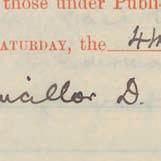 those under Publi
SATURDAY, the 4th
ncillor D.